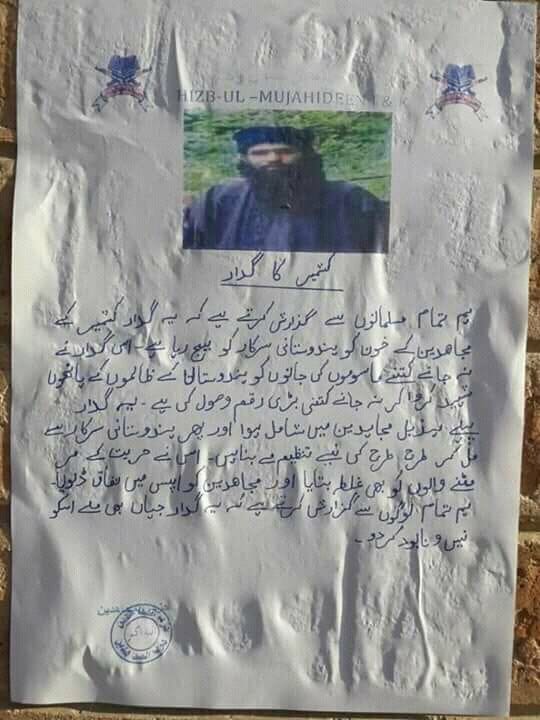 HIZB-UL-MUJAHIDEEN J & K
کشمیر کا گدار
ہم تمام مسلمانوں سے گزارش کرتے ہیے کہ یہ گدار کشمیر کے
مجاھدین کے خون کو ہندوستانی سرکار کو بیچ رہا ہے۔ اس گدار نے
نہ جانے کتنے ماسوموں کی جانوں کو ہندوستان کے ظالموں کے ہاتھوں
شہید کروا کر نہ جانے کتنی بڑی رقم وصول کی ہے۔ یہ گدار
پہلے مجاہدین میں شامل ہوا اور پھر ہندوستانی سرکار سے
مل کر طرح طرح کی نیے تنظیمے بنایں۔ اس نے حریت کے مر
مٹنے والوں کو بھی غلط بتایا اور مجاھدین کو آپس میں نفاق ڈلوایا۔
ہم تمام لوگوں سے گزارش کرتے ہیے کہ یہ گدار جہاں بھی ملے اسکو
نیس و نابود کر دو۔